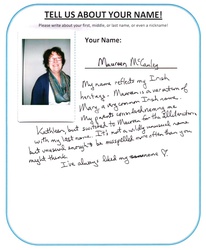 TELL US ABOUT YOUR NAME!
Please write about your first, middle, or last name, or even a nickname!
Your Name:
Maureen McCauley
My name reflects my Irish
heritage - Maureen is a variation of
Mary, a very common Irish name.
My parents considered naming me
Kathleen, but switched to Maureen for the alliteration
with my last name. It's not a wildly unusual name
but unusual enough to be misspelled more often than you
might think.
I've always liked my name